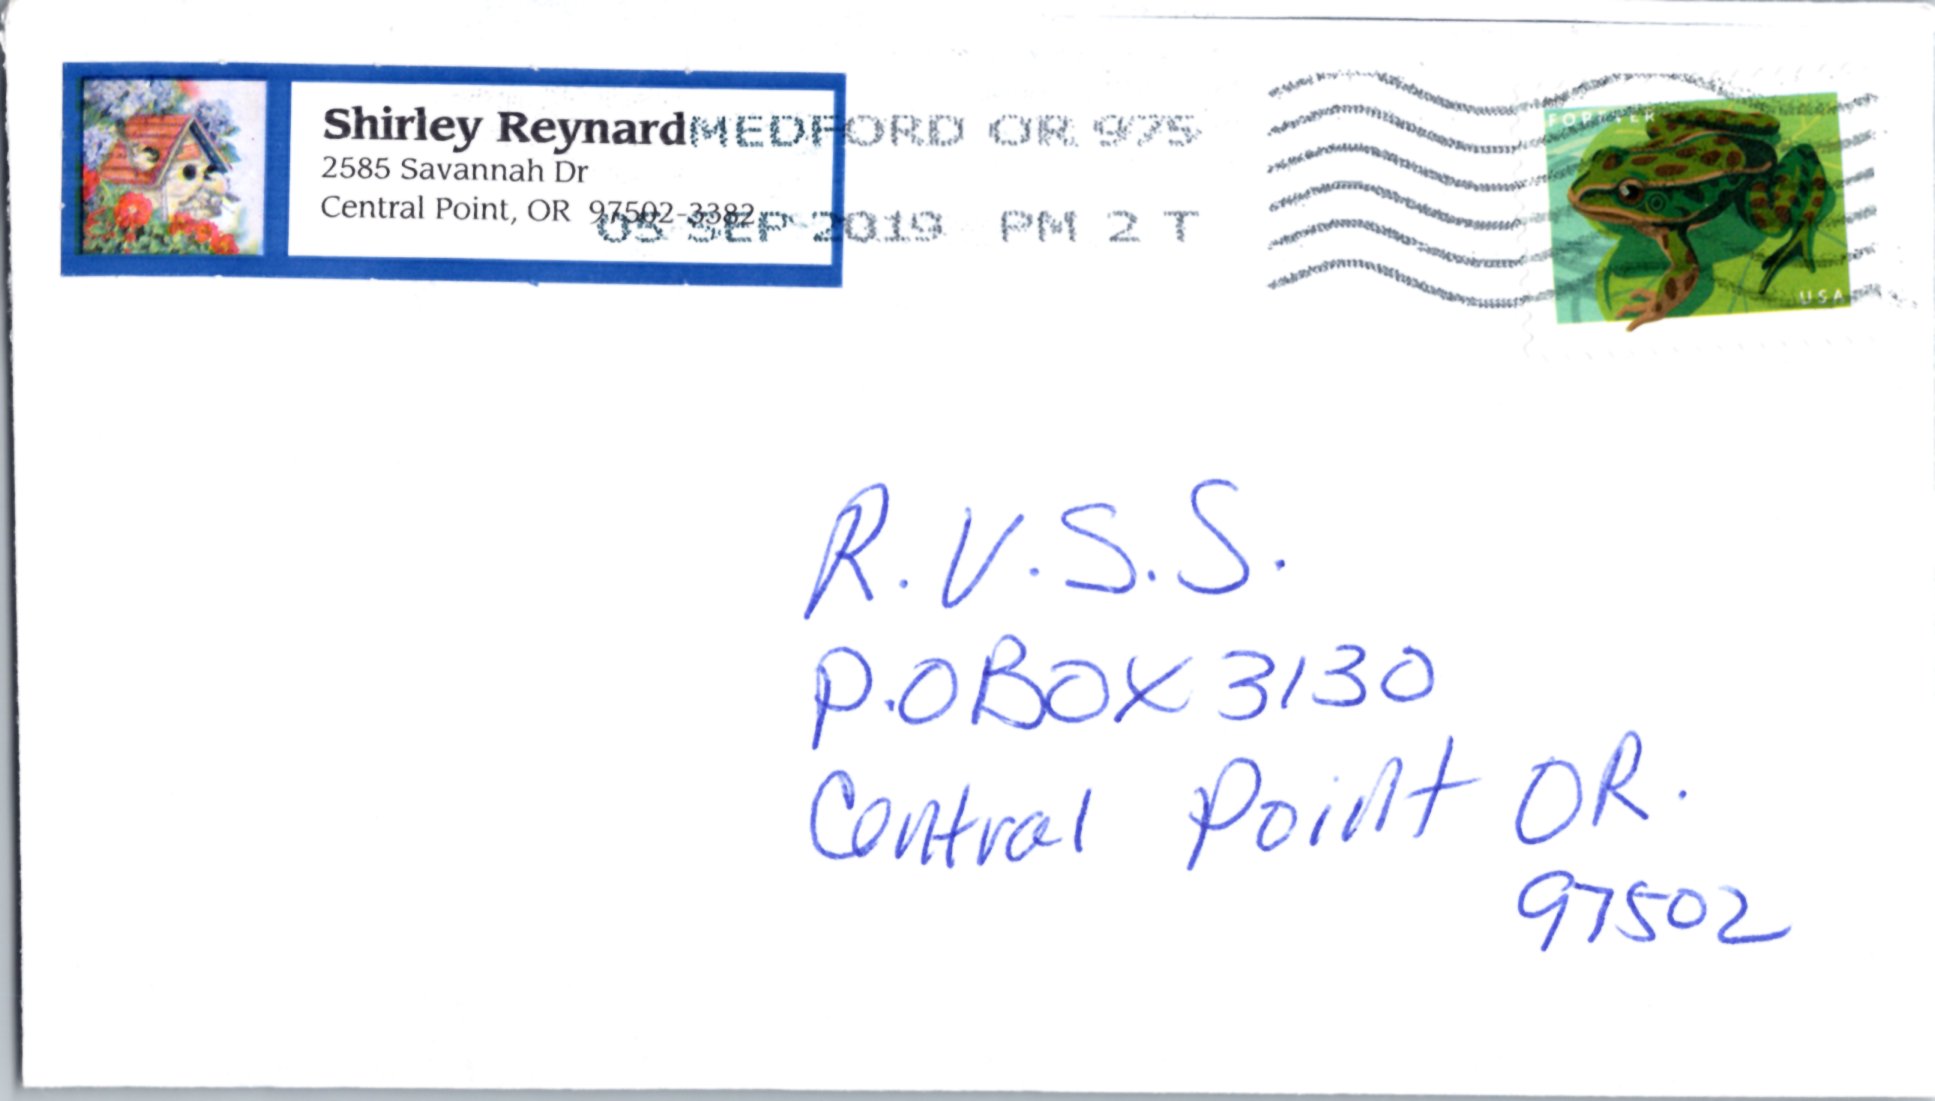 Shirley Reynard
2585 Savannah Dr
Central Point, OR 97502-3382
MEDFORD OR 975
05 SEP 2019 PM 2 T
FOREVER
USA
R.V.S.S.
P.O BOX 3130
Central Point OR.
97502